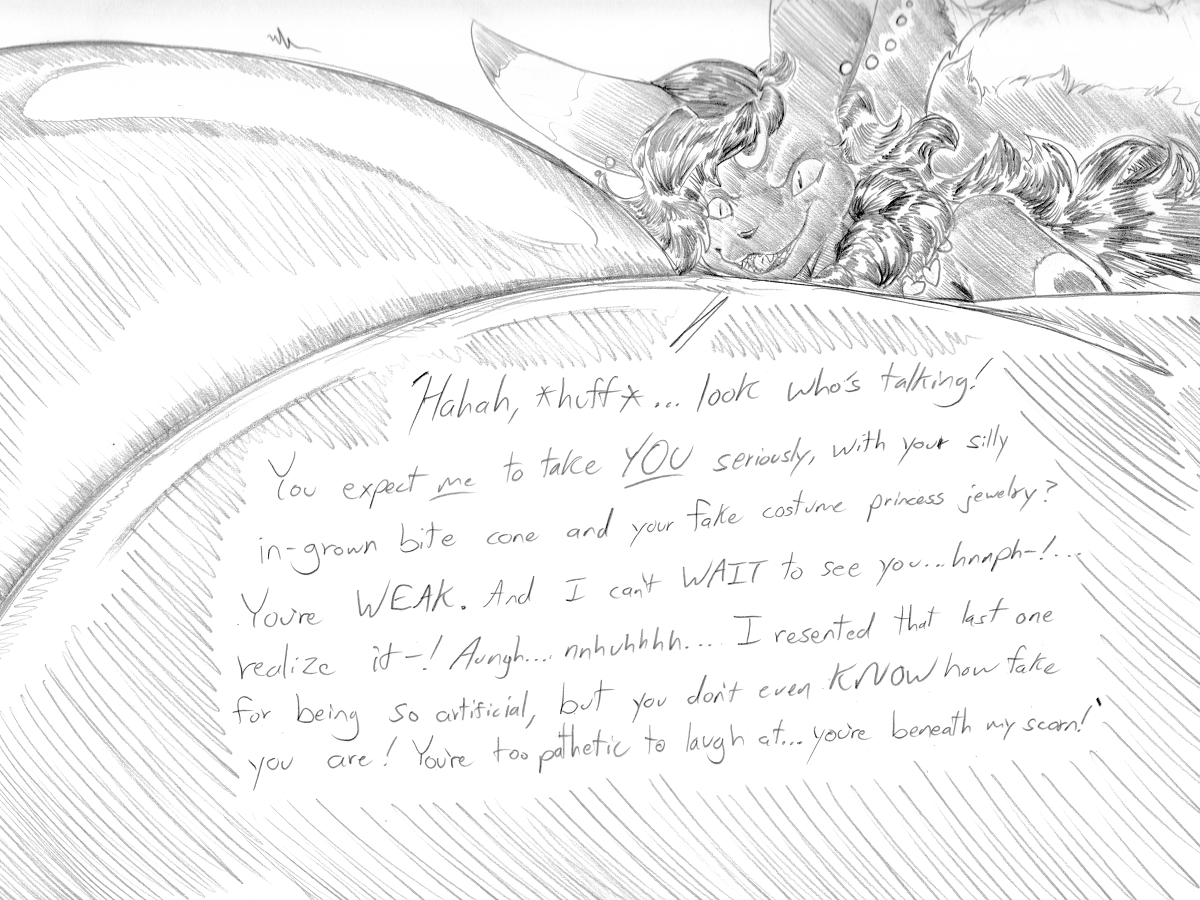 "Hahah, *huff*... look who's talking!
You expect me to take YOU seriously, with your silly
in-grown bite cone and your fake costume princess jewelry?
You're WEAK. And I can't WAIT to see you...hnnph-!...
realize it-! Aungh.... nnhuhhhh.... I resented that last one
for being so artificial, but you don't even KNOW how fake
you are! You're too pathetic to laugh at... you're beneath my scorn!"